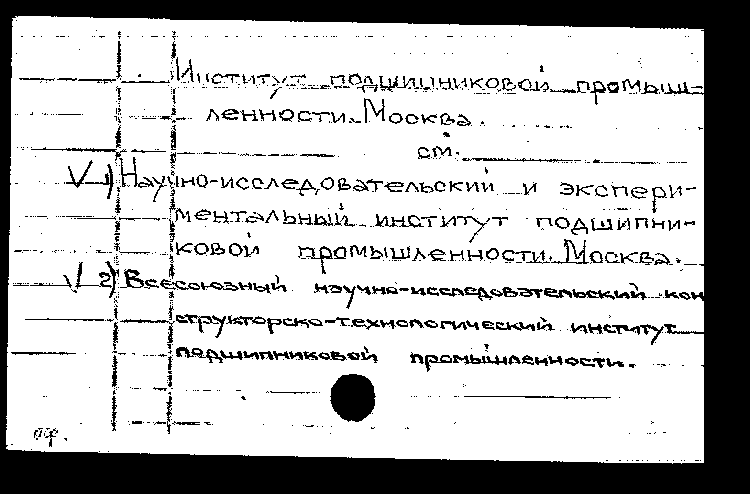 Институт подшипниковой промыш-
ленности. Москва.
см.
V 1) Научно-исследовательский и экспери-
ментальный институт подшипни-
ковой промышленности. Москва.
V 2) Всесоюзный научно-исследовательский кон
структорско-технологический институт
подшипниковой промышленности.